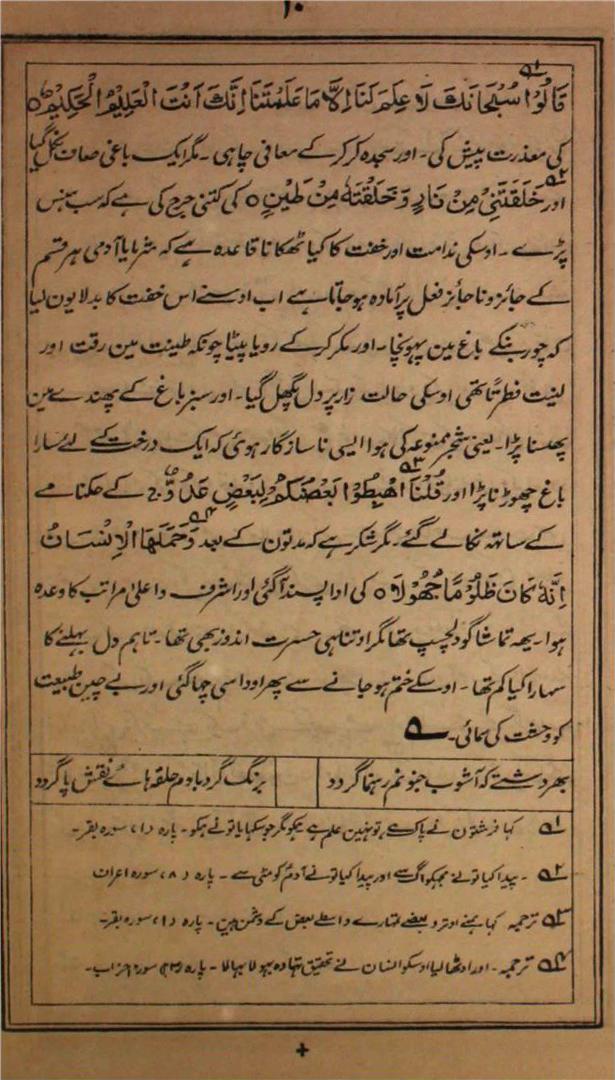 ۱۰
قَالُوْا سُبْحَانَكَ لَا عِلْمَ لَنَا اِلَّا مَا عَلَّمْتَنَا اِنَّكَ اَنْتَ الْعَلِيْمُ الْحَكِيْمُ ۝ ۱
کی معذرت پیش کی۔ اور سجدہ کر کر کے معافی چاہی۔ مگر ایک باغی صاف نکل گیا
اور ۲ خَلَقْتَنِیْ مِنْ نَّارٍ وَّخَلَقْتَهٗ مِنْ طِيْنٍ ۝ کی کتنی جرح کی ہے کہ سب ہنس
پڑے۔ اوسکی ندامت اور خفت کا کیا ٹھکانا قاعدہ ہے کہ شرمایا آدمی ہر قسم
کے جائز و ناجائز فعل پر آمادہ ہو جاتا ہے اب اوسنے اس خفت کا بدلا یون لیا
کہ چور بنکے باغ مین پہونچا۔ اور مکر کر کے رویا پیٹا چونکہ طینت مین رقت اور
لنیت فطرتاً تھی اوسکی حالت زار پر دل پگھل گیا۔ اور سبز باغ کے پھندے مین
پھسنا پڑا۔ یعنی شجر ممنوعہ کی ہوا ایسی ناسازگار ہوئی کہ ایک درخت کے لئے سارا
باغ چھوڑنا پڑا اور قُلْنَا ۳ اهْبِطُوْا بَعْضُكُمْ لِبَعْضٍ عَدُوٌّ ج کے حکنامے
کے ساتھ نکالے گئے۔ مگر شکر ہے کہ مدتون کے بعد ۴ وَحَمَلَهَا الْاِنْسَانُ
اِنَّهٗ كَانَ ظَلُوْمًا جَهُوْلًا ۝ کی ادا پسند آگئی اور اشرف و اعلیٰ مراتب کا وعدہ
ہوا۔ یہہ تماشا گو دلچسپ تھا مگر اوتنا ہی حسرت اندوز بھی تھا۔ تاہم دل بہلنے کا
سہارا کیا کم تھا۔ اوسکے ختم ہو جانے سے پھر اوداسی چھا گئی اور بے چین طبیعت
کو وحشت کی سمائی۔
بھر دشتے کہ آشوب جنونم رہنما گردد برنگ گرد بادم حلقہ ہائے نقش پا گردد
۱ کہا فرشتون نے پاک ہے تو نہین علم ہے ہمکو مگر جو سکہایا تو نے ہمکو۔ پارہ (۱) سورہ بقر۔
۲ ۔ پیدا کیا تو نے مجہکو آگ سے اور پیدا کیا تو نے آدم کو مٹی سے۔ پارہ (۸) سورہ اعراف
۳ ترجمہ کہا ہمنے اوترو بعضے تمہارے واسطے بعض کے دشمن ہین۔ پارہ (۱) سورہ بقر۔
۴ ترجمہ۔ اور اوٹھا لیا اوسکو انسان نے تحقیق تہا وہ بہولا بہالا۔ پارہ (۲۲) سورہ احزاب۔